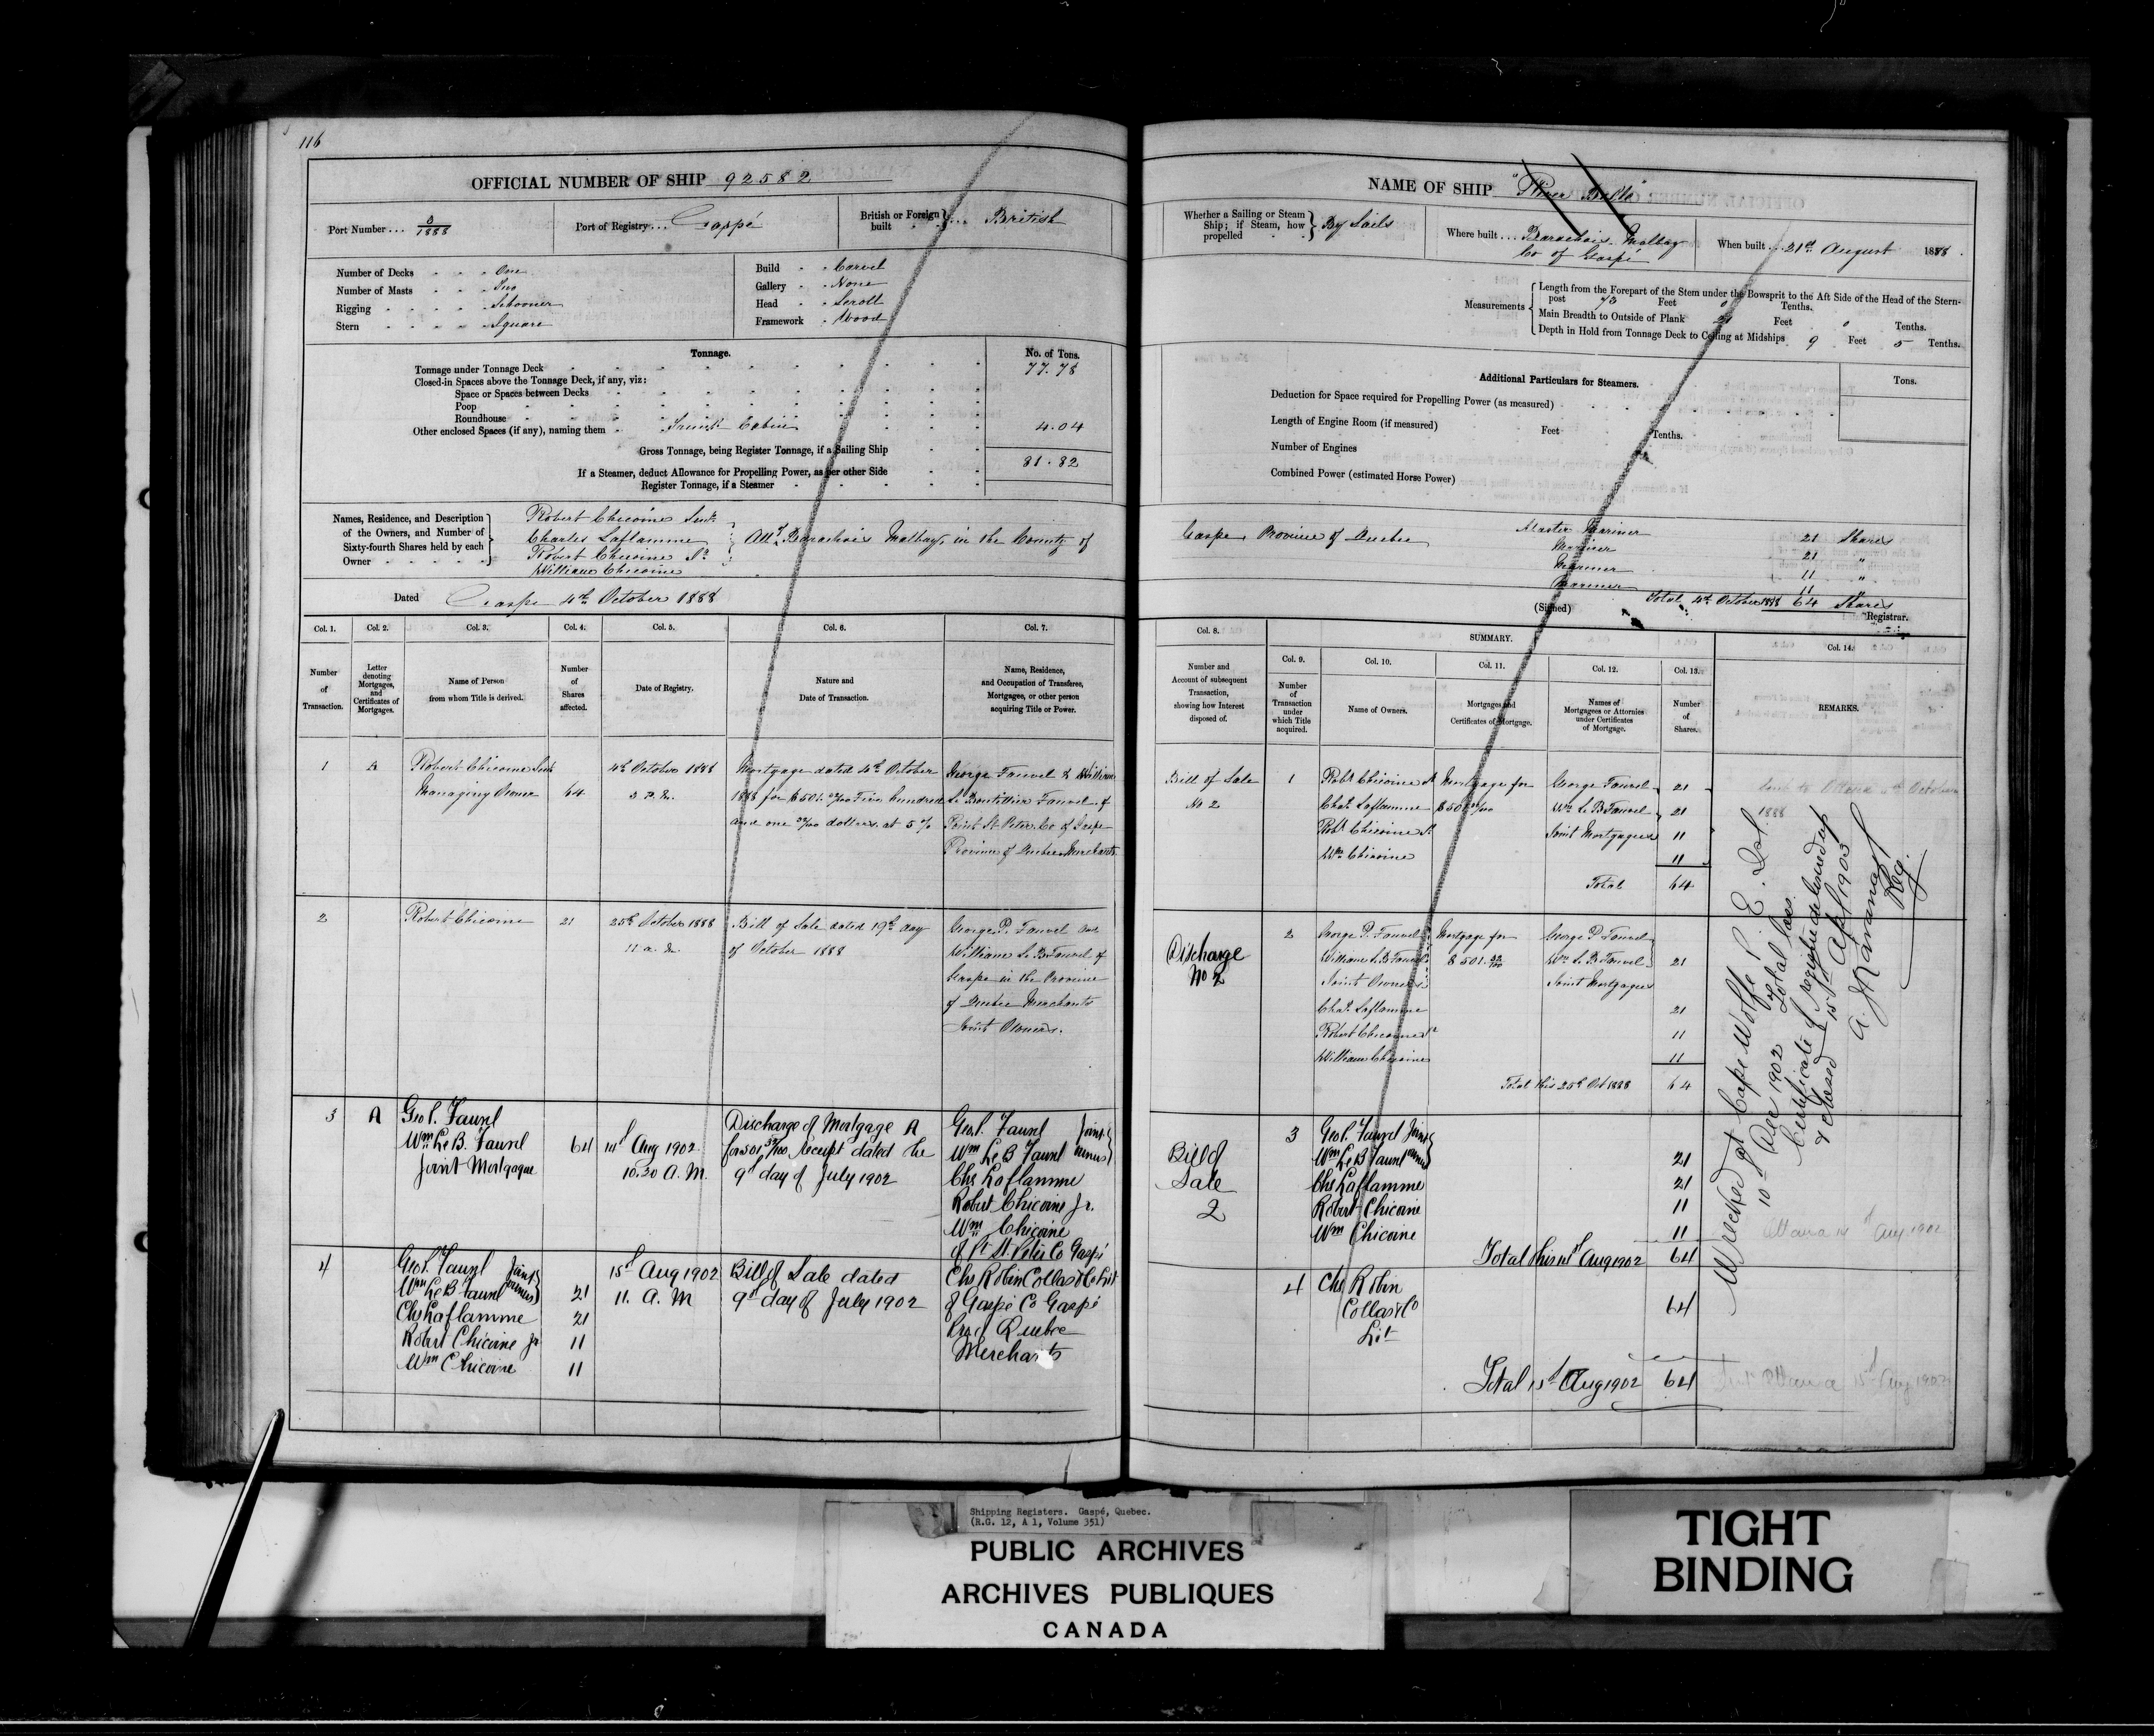 116
OFFICIAL NUMBER OF SHIP 92582
Port Number ... 3/1888
Port of Registry ... Gaspé
British or Foreign built } ... British
Number of Decks One
Number of Masts Two
Rigging Schooner
Stern Square
Build Carvel
Gallery None
Head Scroll
Framework Wood
Tonnage. No. of Tons.
Tonnage under Tonnage Deck 77.78
Closed-in Spaces above the Tonnage Deck, if any, viz:
Space or Spaces between Decks
Poop
Roundhouse
Other enclosed Spaces (if any), naming them Trunk Cabin 4.04
Gross Tonnage, being Register Tonnage, if a Sailing Ship 81.82
If a Steamer, deduct Allowance for Propelling Power, as per other Side
Register Tonnage, if a Steamer
Names, Residence, and Description of the Owners, and Number of Sixty-fourth Shares held by each Owner
Robert Chicoine
Charles Laflamme
Robert Chicoine Jr
William Chicoine
All of Barachois Malbay, in the County of
Dated Gaspe 4th October 1888
Col. 1. Col. 2. Col. 3. Col. 4. Col. 5. Col. 6. Col. 7.
Number of Transaction.
Letter denoting Mortgages, and Certificates of Mortgages.
Name of Person from whom Title is derived.
Number of Shares affected.
Date of Registry.
Nature and Date of Transaction.
Name, Residence, and Occupation of Transferee, Mortgagee, or other person acquiring Title or Power.
1 A Robert Chicoine 4th October 1888 Mortgage dated 4th October George Fauvel & William
Managing Owner 64 1888 for $501 Five hundred Le Boutillier Fauvel of
and one dollars at 5 % Point St Peter Co of Gaspe
Province of Quebec Merchants
2 Robert Chicoine 21 25th October 1888 Bill of Sale dated 19th day George P. Fauvel and
11 a. m. of October 1888 William Le B Fauvel of
Gaspe in the Province
of Quebec Merchants
Joint Owners.
3 A Geo P. Fauvel Discharge of Mortgage A Geo P. Fauvel Joint
Wm Le B. Fauvel 64 14th Aug 1902 receipt dated the Wm Le B Fauvel owners
Joint Mortgagee 10.30 A. M. 9th day of July 1902 Chs Laflamme
Robert Chicoine Jr.
Wm Chicoine
of Pt St Peter Co Gaspé
4 Geo P. Fauvel Joint 15th Aug 1902 Bill of Sale dated Chs Robin Collas & Co Lmt
Wm Le B Fauvel owners 21 11. A. M 9th day of July 1902 of Gaspé Co Gaspé
Chs Laflamme 21 Prov of Quebec
Robert Chicoine Jr 11 Merchants
Wm Chicoine 11
NAME OF SHIP
Whether a Sailing or Steam Ship; if Steam, how propelled } By Sails
Where built ... Barachois Malbay
Co of Gaspé
When built ... 21st August 1888.
Measurements
Length from the Forepart of the Stem under the Bowsprit to the Aft Side of the Head of the Stern-
post 73 Feet 0 Tenths.
Main Breadth to Outside of Plank Feet 0 Tenths.
Depth in Hold from Tonnage Deck to Ceiling at Midships 9 Feet 5 Tenths.
Additional Particulars for Steamers. Tons.
Deduction for Space required for Propelling Power (as measured)
Length of Engine Room (if measured) Feet Tenths.
Number of Engines
Combined Power (estimated Horse Power)
Gaspe, Province of Quebec Master Mariner 21 Shares
Mariner 21 "
Mariner 11 "
Mariner 11 "
Total 4th October 1888 64 Shares
(Signed) Registrar.
Col. 8. SUMMARY. Col. 14.
Col. 9. Col. 10. Col. 11. Col. 12. Col. 13.
Number and Account of subsequent Transaction, showing how Interest disposed of.
Number of Transaction under which Title acquired.
Name of Owners.
Mortgages and Certificates of Mortgage.
Names of Mortgagees or Attornies under Certificates of Mortgage.
Number of Shares.
REMARKS.
Bill of Sale 1 Robt Chicoine Mortgage for George Fauvel 21
No 2 Chas Laflamme $501 Wm Le B Fauvel 21
Robt Chicoine Joint Mortgagees 11
Wm Chicoine 11
Total 64
Sent to Ottawa October
1888
Discharge 2 George P. Fauvel Mortgage for George P Fauvel
No 2 William Le B Fauvel $501. Wm Le B Fauvel 21
Joint Owners Joint Mortgagees
Chas Laflamme 21
Robert Chicoine 11
William Chicoine 11
Total this 25th Oct 1888 64
Bill of 3 Geo P. Fauvel Joint
Sale Wm Le B Fauvel owners 21
2 Chs Laflamme 21
Robert Chicoine 11
Wm Chicoine 11
Total this 14th Aug 1902 64
Ottawa 14th Aug 1902
4 Chs Robin
Collas & Co 64
Lit
Total 15th Aug 1902 64
Sent Ottawa 15th Aug 1902
Wrecked at Cape Wolfe P. E. Isl.
10th Dec 1902 Total loss.
Certificate of registry delivered up
& closed 15th Apl 1903
Reg.
Shipping Registers. Gaspé, Quebec.
(R.G. 12, A 1, Volume 351)
PUBLIC ARCHIVES
ARCHIVES PUBLIQUES
CANADA
TIGHT
BINDING